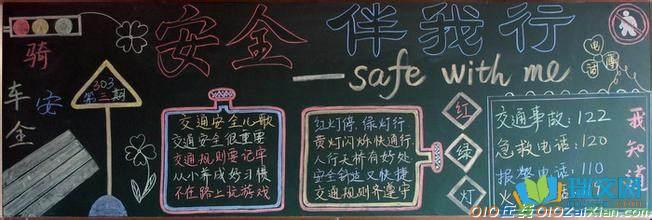 安全 伴我行
—safe with me
骑车安全
303
第三期
交通安全儿歌
交通安全很重要
交通规则要记牢
从小养成好习惯
不在路上玩游戏
红灯停、绿灯行
黄灯闪烁快通行
人行天桥有好处
安全 又快捷
交通规则齐遵守
红
绿
灯
电话
交通事故:122
急救电话:120
报警电话:110
火
我知道
瑞文网
010在线 010zaixian.com